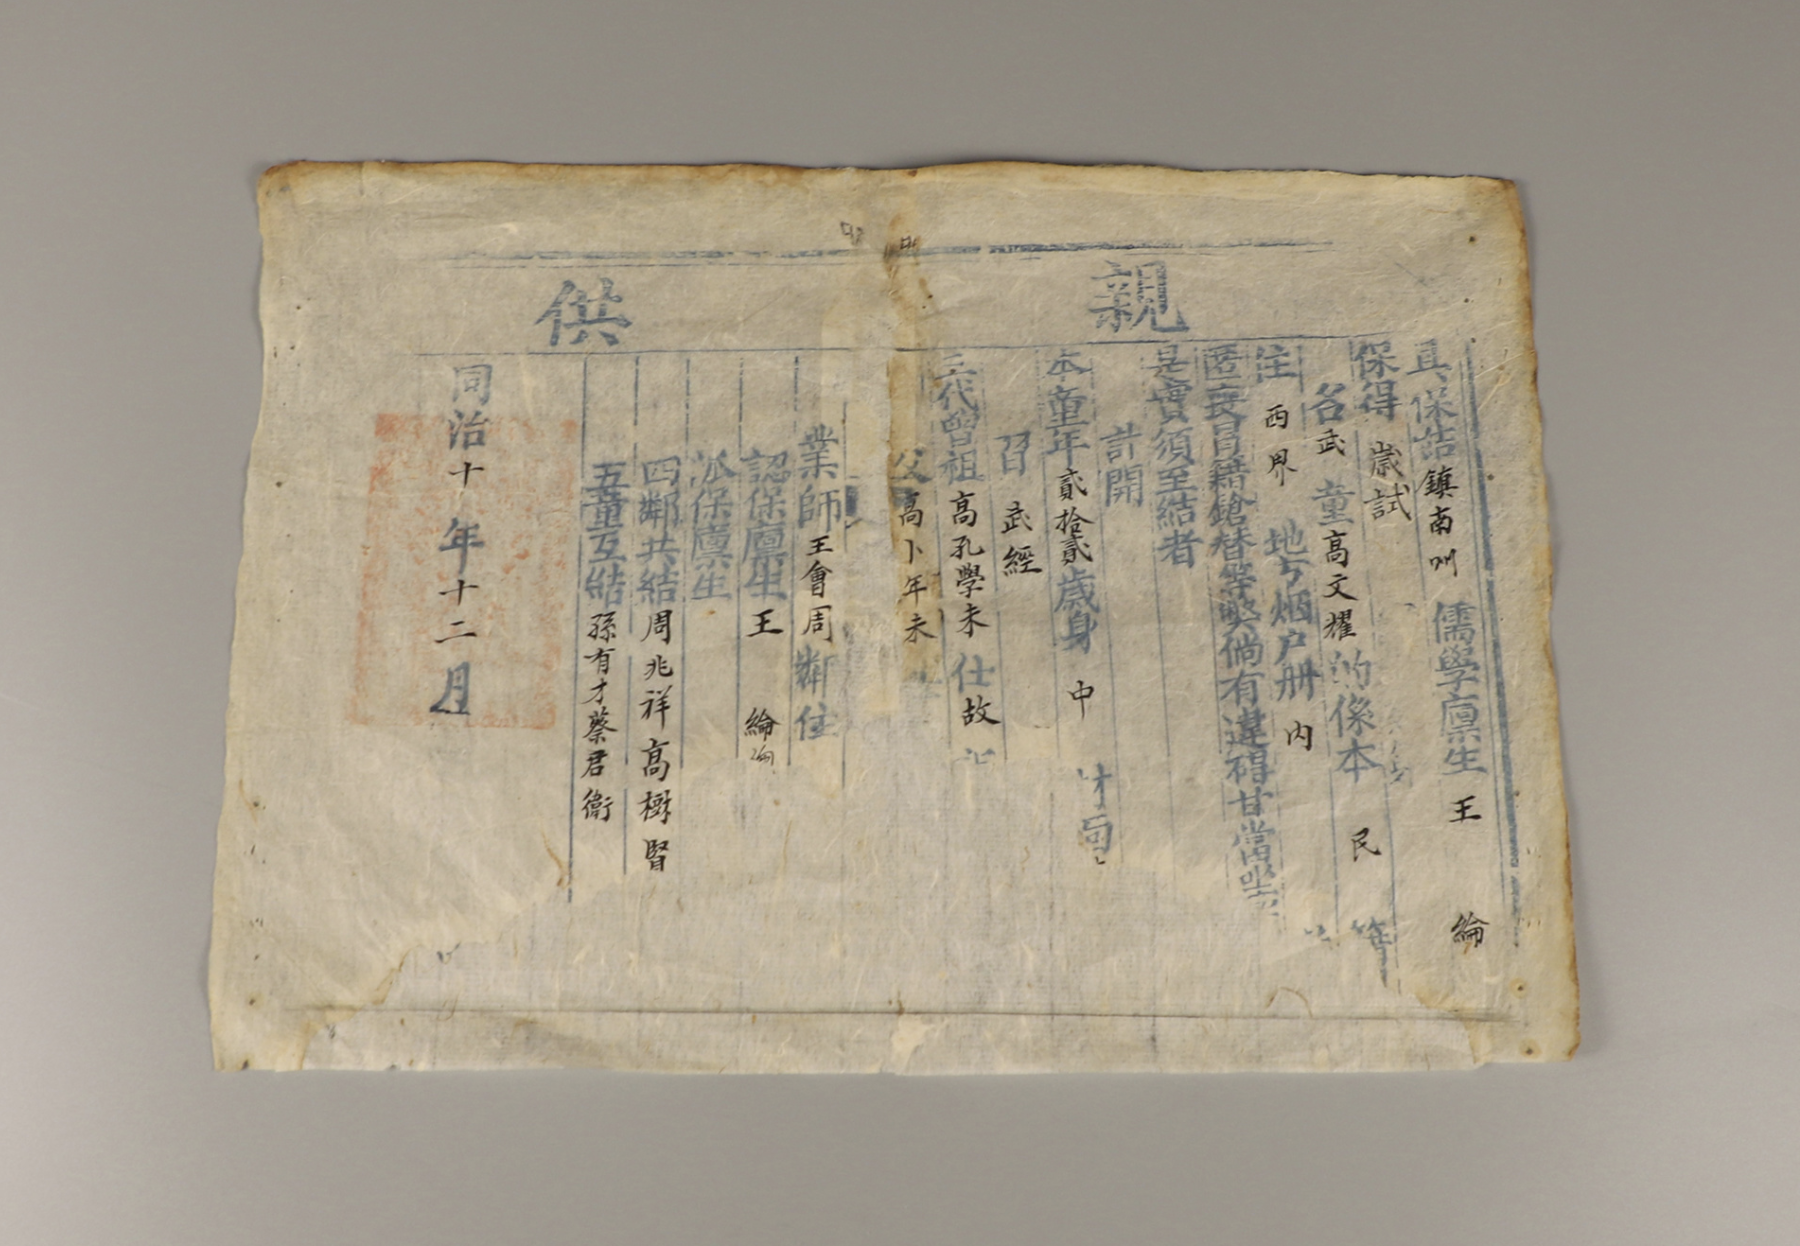 親供
具保結鎮南州儒學廩生王綸
保得歲試
名武童高文耀的係本民等
住西界地方烟户册内
匿喪冒籍鎗替等弊倘有違碍甘當坐
是實須至結者
計開
本童年貳拾貳歲身中才面
習武經
三代曾祖高孔學未仕故
父高卜年未
業師王會周鄰住
認保廩生王綸
派保廩生
四鄰共結周兆祥高樹賢
五童互結孫有才蔡君衞
同治十年十二月